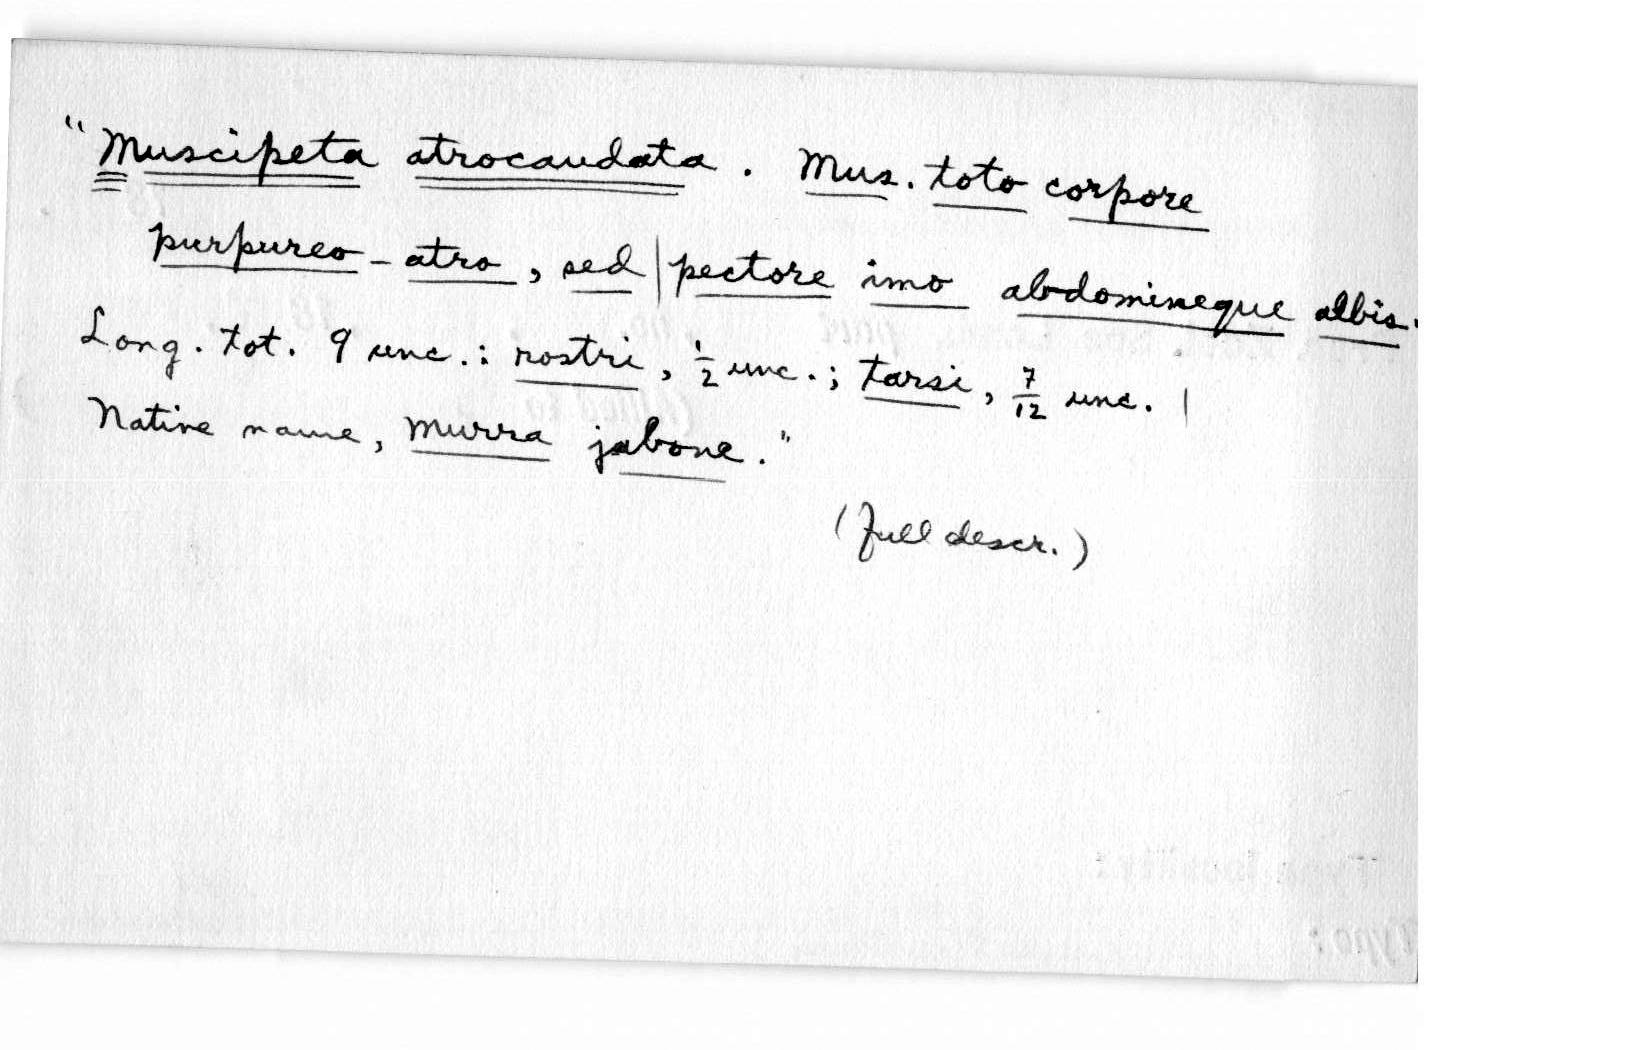 "Muscipeta atrocaudata. Mus. toto corpore
purpureo-atro, sed | pectore imo abdomineque albis.
Long. tot. 9 unc.: rostri, 1/2 unc.; tarsi, 7/12 unc. |
Native name, Murra jabone."
(full descr.)